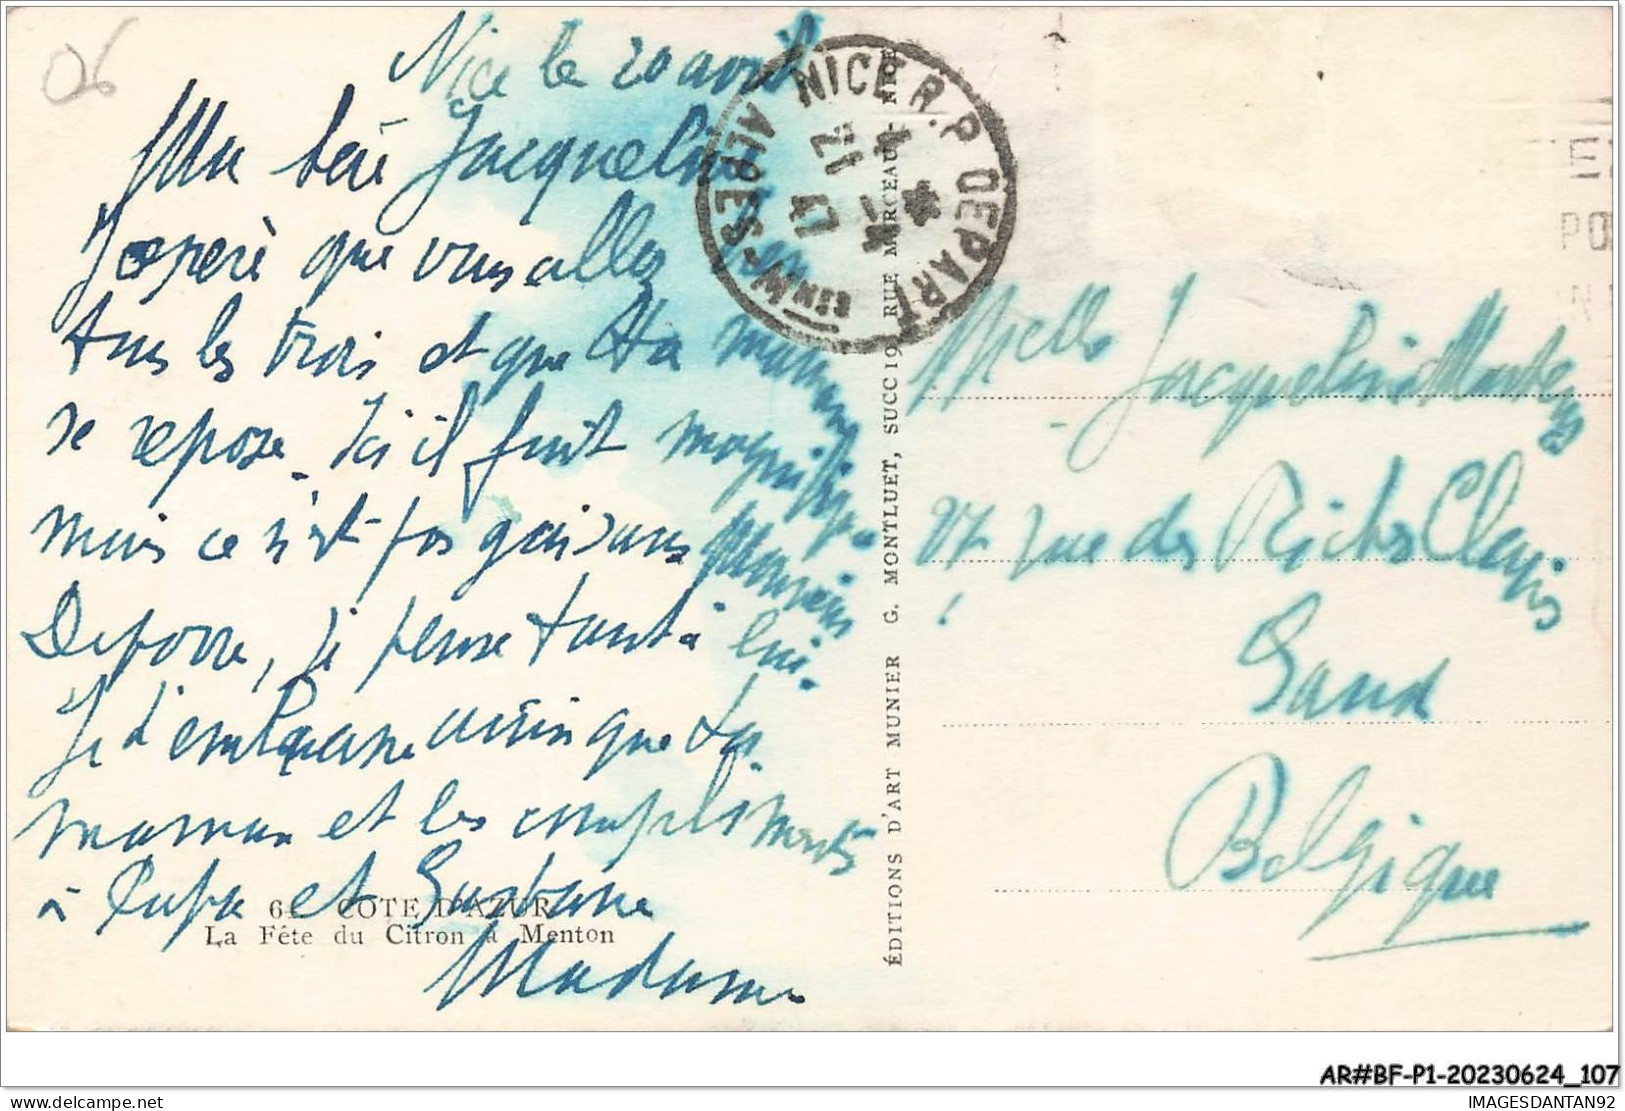 06
Nice le 20 avril
Ma Jacqueline
J'espère que vous allez bien
tous les trois et que ta maman
se repose. Ici il fait magnifique
mais ce n'est pas gai sans Monsieur
je pense tant à lui.
Je t'embrasse ainsi que ta
maman et les compliments
à Papa et
Madame
64 COTE D'AZUR
La Fête du Citron à Menton
ÉDITIONS D'ART MUNIER G. MONTLUET, SUCC 19, RUE MARCEAU - NICE
NICE R.P. DEPART
ALPES-MMES
Melle Jacqueline
27 rue des Claris
Gand
Belgique
AR#BF-P1-20230624_107
IMAGESDANTAN92